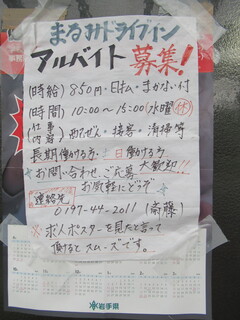 まるみドライブイン
アルバイト募集!
(時給) 850円・日払・まかない付
(時間) 10:00〜15:00(水曜㊡)
(仕事内容) 配ぜん・接客・清掃等
長期働ける方・日働ける方
大歓迎!!
お問い合わせ、ご応募
お気軽にどうぞ
連絡先
0197-44-2011 (斎藤)
※求人ポスターを見たと言って
頂けるとスムーズです。
岩手県